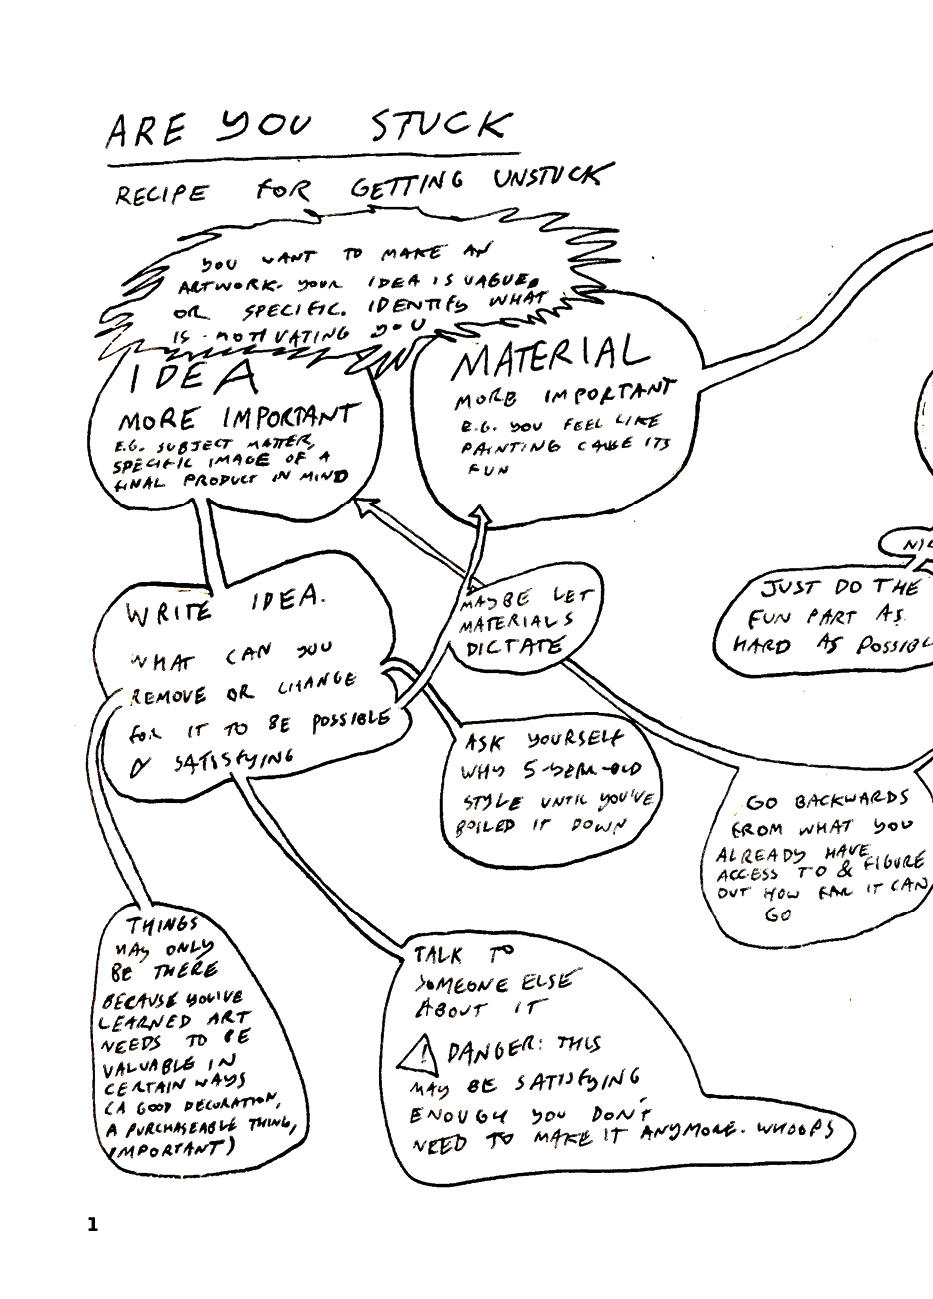 ARE YOU STUCK
RECIPE FOR GETTING UNSTUCK
YOU WANT TO MAKE AN
ARTWORK. YOUR IDEA IS VAGUE,
OR SPECIFIC. IDENTIFY WHAT
IS MOTIVATING YOU
IDEA
MORE IMPORTANT
E.G. SUBJECT MATTER,
SPECIFIC IMAGE OF A
FINAL PRODUCT IN MIND
MATERIAL
MORE IMPORTANT
E.G. YOU FEEL LIKE
PAINTING CAUSE ITS
FUN
WRITE IDEA.
WHAT CAN YOU
REMOVE OR CHANGE
FOR IT TO BE POSSIBLE
& SATISFYING
MAYBE LET
MATERIALS
DICTATE
JUST DO THE
FUN PART AS
HARD AS POSSIBL
ASK YOURSELF
WHY 5-YEAR-OLD
STYLE UNTIL YOU'VE
BOILED IT DOWN
GO BACKWARDS
FROM WHAT YOU
ALREADY HAVE
ACCESS TO & FIGURE
OUT HOW FAR IT CAN
GO
THINGS
MAY ONLY
BE THERE
BECAUSE YOU'VE
LEARNED ART
NEEDS TO BE
VALUABLE IN
CERTAIN WAYS
(A GOOD DECORATION,
A PURCHASEABLE THING,
IMPORTANT)
TALK TO
SOMEONE ELSE
ABOUT IT
! DANGER: THIS
MAY BE SATISFYING
ENOUGH YOU DON'T
NEED TO MAKE IT ANYMORE. WHOOPS
1